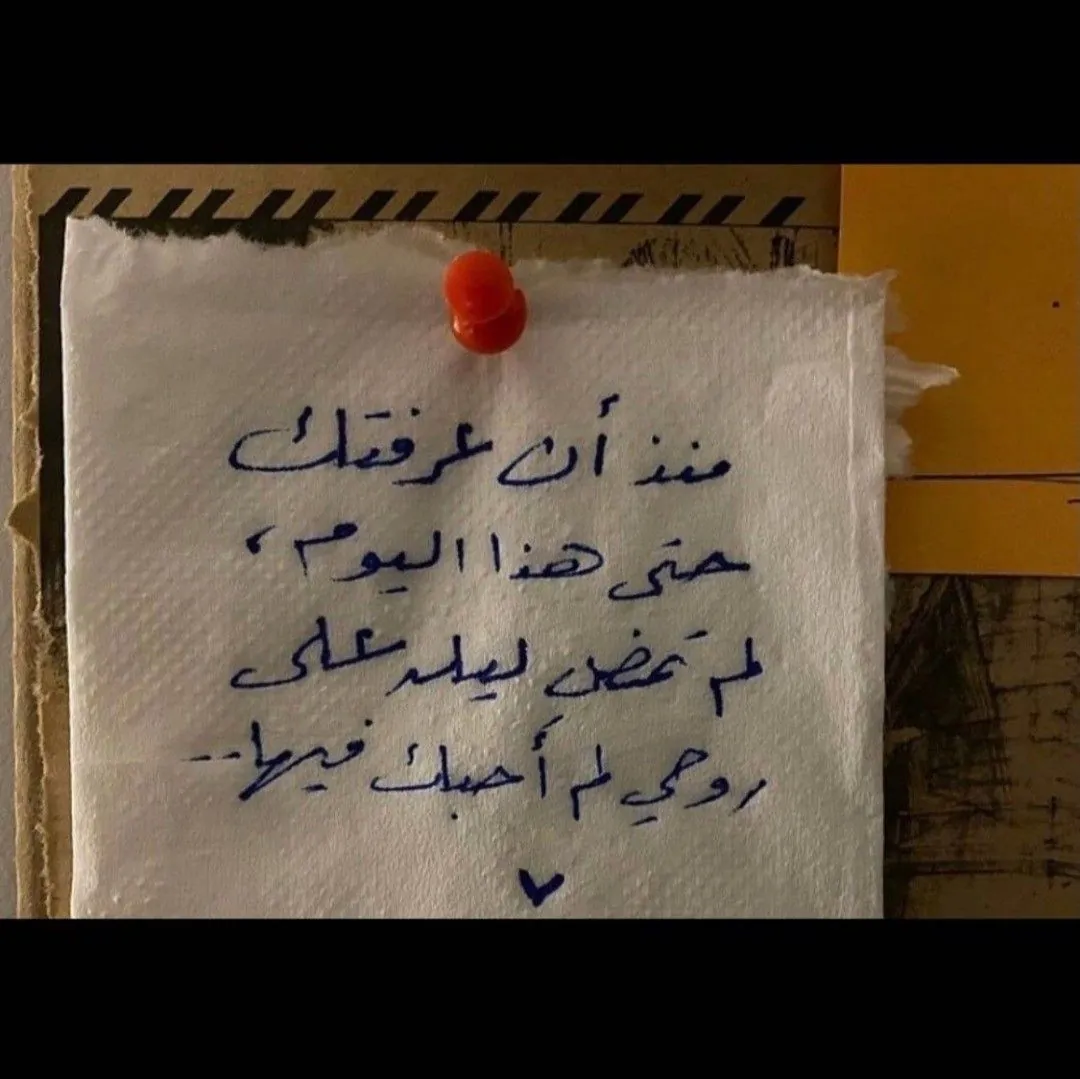 منذ أن عرفتك
حتى هذا اليوم،
لم تمضِ ليلة على
روحي لم أحبك فيها..